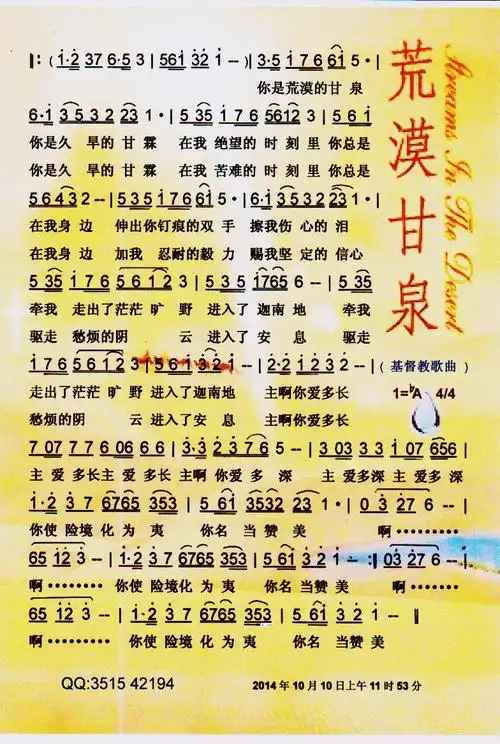 荒漠甘泉
Streams In The Desert
‖: ( i·2 37 6·5 3 | 561 32 1 -- )| 3·5 1 7 6 61 5 · |
你是荒漠的甘 泉
6·1 3 5 3 2 23 1 · | 5 35 1 7 6 5612 3 | 5 6 1
你是久 旱的 甘 霖 在我 绝望的 时 刻 里 你总是
你是久 旱的 甘 霖 在我 苦难的 时 刻 里 你总是
5 6 4 3 2 -- | 5 3 5 1 7 6 61 5 · | 6·1 3 5 3 2 23 1 · |
在我身 边 伸出你钉痕的双 手 擦我伤 心的 泪
在我身 边 加我 忍耐的毅 力 赐我坚 定的 信心
5 35 1 7 6 5 6 1 2 3 | 5 3 5 1765 6 -- | 5 35
牵我 走出了茫茫 旷 野 进入了 迦南 地 牵我
驱走 愁烦的阴 云 进入了 安 息 驱走
1 7 6 5 6 1 2 3 | 5 6 1 3 2 1 -- | 2·2 1 2 3 2 -- | ( 基督教歌曲 )
走出了茫茫 旷 野 进入了迦南地 主啊你爱多长
愁烦的阴 云 进入了安 息 主啊你爱多长
1=♭A 4/4
7 07 7 7 6 06 6 6 | 3·3 2 3 7 6 5 -- | 3 03 3 3 1 07 656 |
主 爱 多长主 爱 多长 主啊 你爱 多 深 主 爱多深 主 爱多 深
1·2 3 7 6765 353 | 5 61 3532 23 1 · | 0 3 27 6 -- |
你使 险境化 为 夷 你名 当 赞 美 啊·········
65 12 3 -- | 1·2 3 7 6765 353 | 5 61 3 2 1 - :‖ 03 27 6 -- |
啊········· 你使 险境化 为 夷 你名 当赞 美 啊·········
65 12 3 -- | 1·2 3 7 6765 353 | 5 61 3 2 1 -- |
啊········· 你使 险境化 为 夷 你名 当赞 美
QQ:3515 42194
2014 年 10 月 10 日上午 11 时 53 分